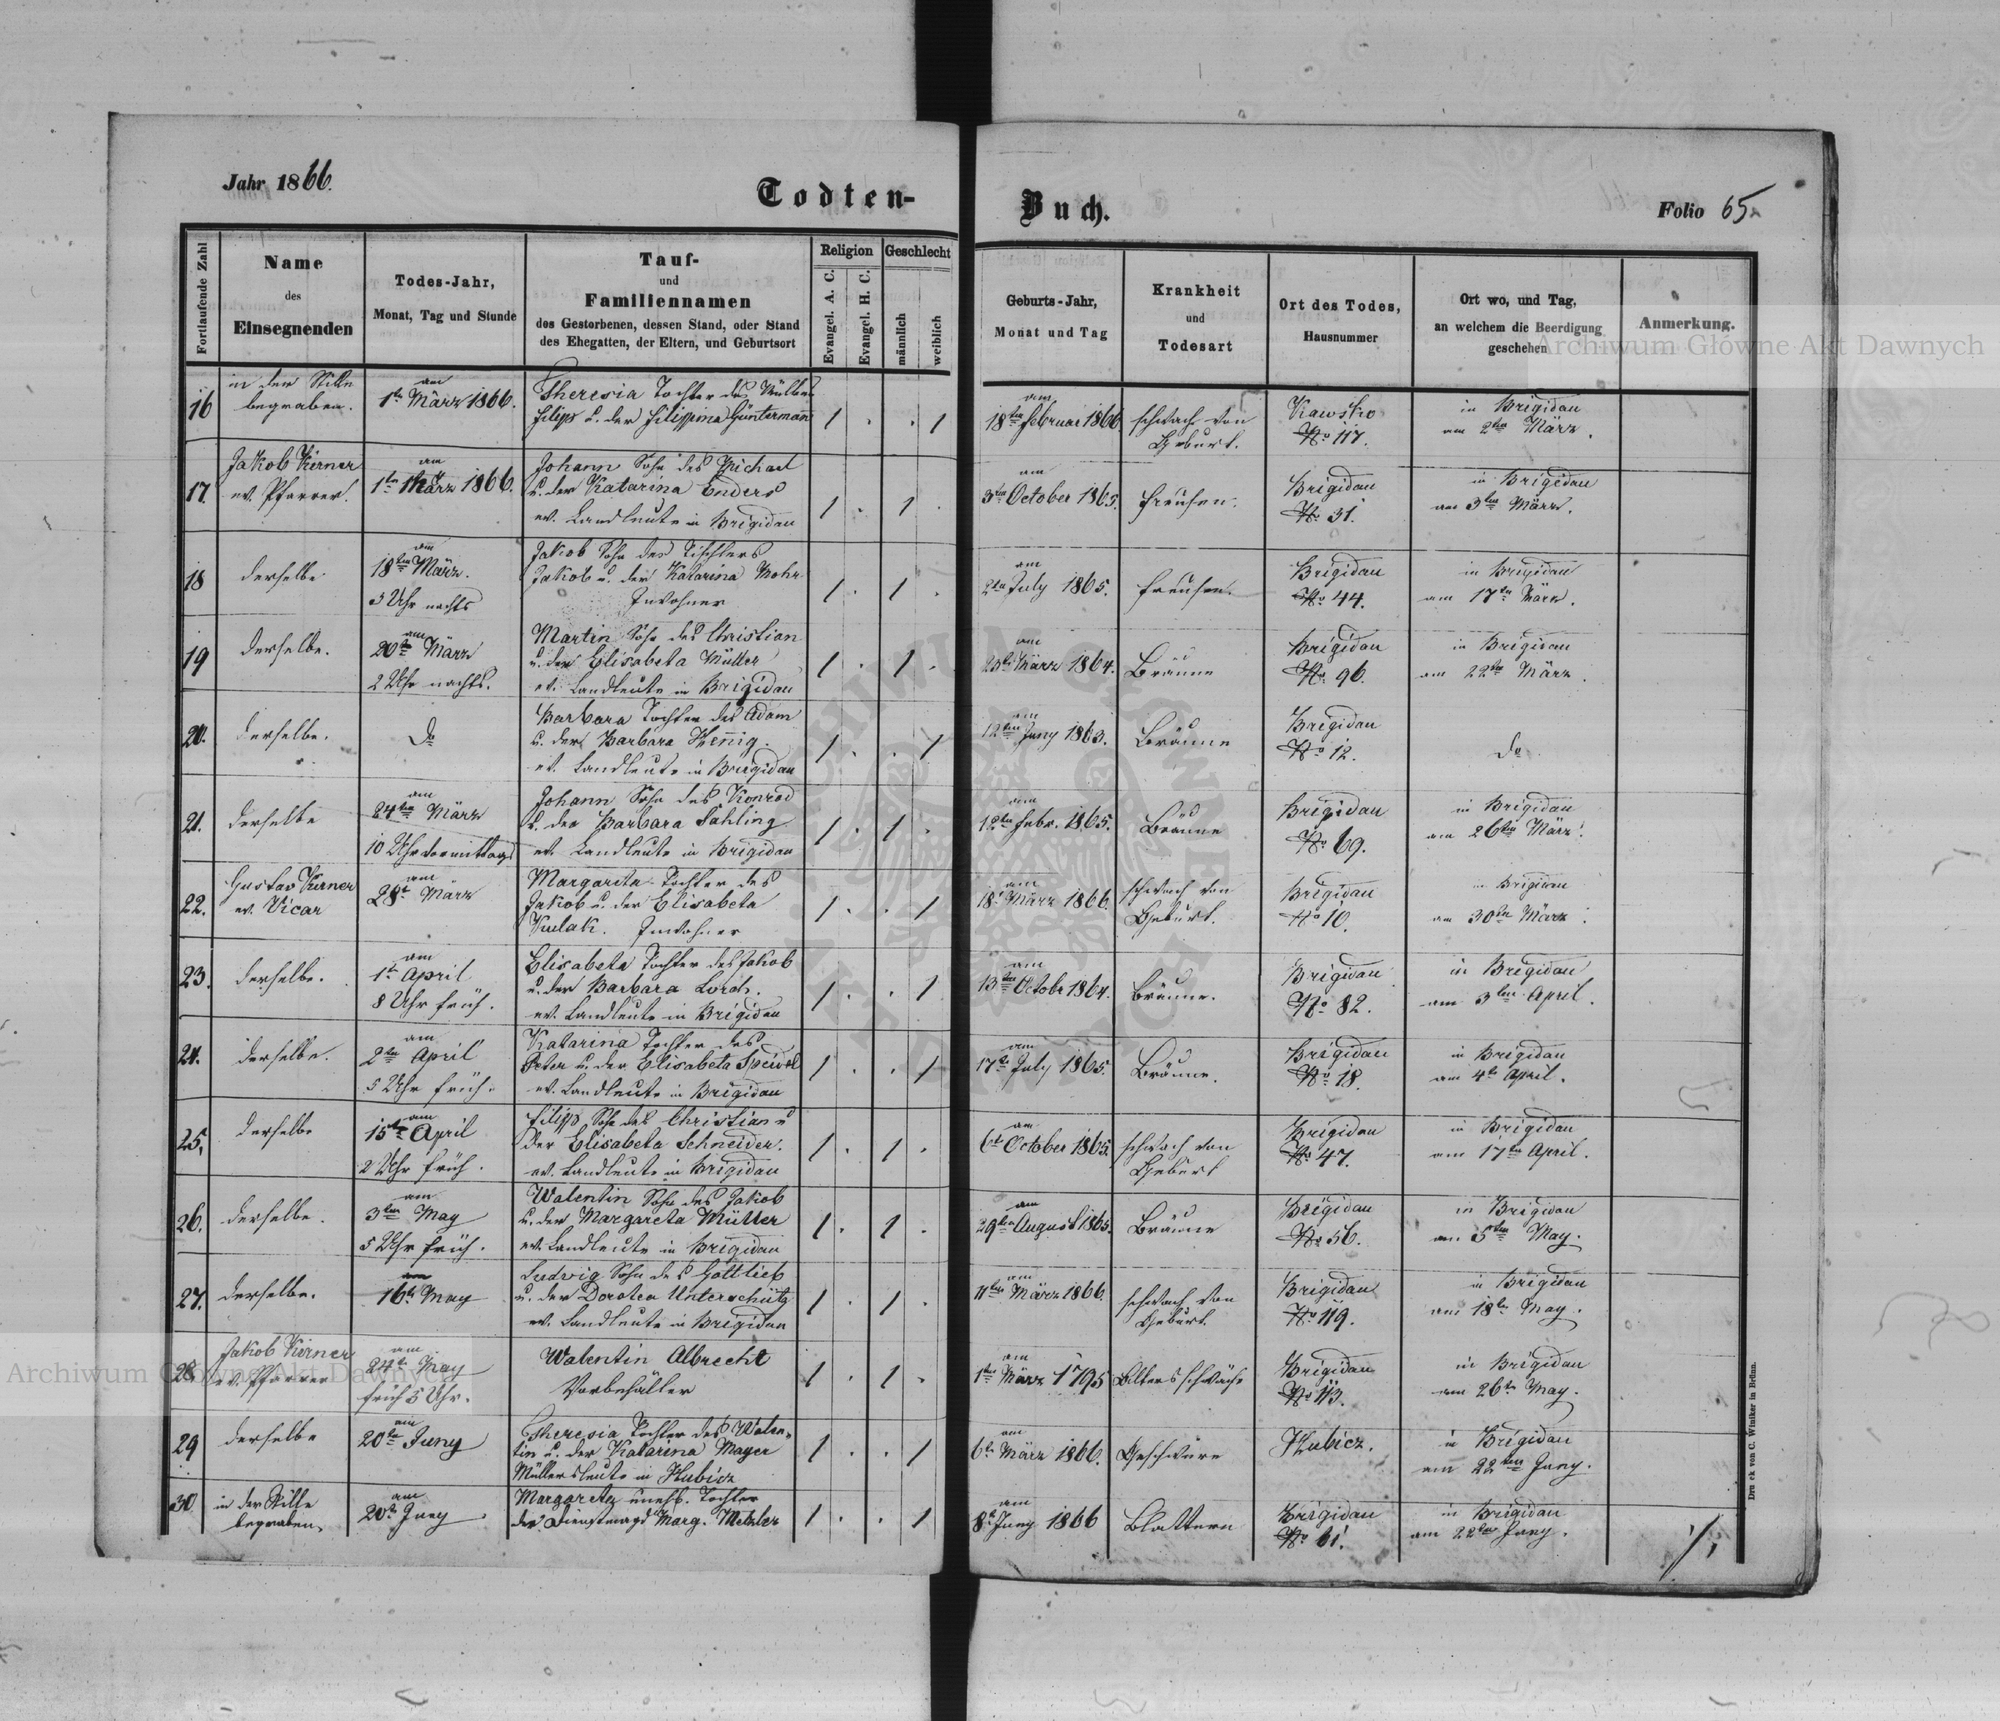 Jahr 1866.
Todten-
Buch.
Folio 65
Fortlaufende Zahl
Name
des
Einsegnenden
Todes-Jahr,
Monat, Tag und Stunde
Tauf-
und
Familiennamen
des Gestorbenen, dessen Stand, oder Stand
des Ehegatten, der Eltern, und Geburtsort
Religion
Evangel. A. C.
Evangel. H. C.
Geschlecht
männlich
weiblich
Geburts-Jahr,
Monat und Tag
Krankheit
und
Todesart
Ort des Todes,
Hausnummer
Ort wo, und Tag,
an welchem die Beerdigung
geschehen
Anmerkung.
16
in der Stille
begraben.
am
1ten März 1866.
Theresia Tochter des
Filipp u. der Filippina Güntermann
/ . . /
am
18ten Februar 1866
schwach von
Geburt.
Kawsko
No 117.
in Brigidau
am 2ten März.
17.
Jakob Kerner
ev. Pfarrer.
am
1ten März 1866.
Johann Sohn des Michael
u. der Katarina Enders
ev. Landleute in Brigidau
/ . / .
am
3ten October 1865.
Freisen.
Brigidau
No 31.
in Brigidau
am 3ten März.
18
derselbe
am
18ten März.
3 Uhr nachts
Jakob Sohn des Tischlers
Jakob u. der Katarina Mohr
Inwohner
/ . / .
am
2ten July 1865.
Freisen.
Brigidau
No 44.
in Brigidau
am 17ten März.
19
derselbe.
am
20ten März
2 Uhr nachts.
Martin Sohn des Christian
u. der Elisabeta Müller
ev. Landleute in Brigidau
/ . / .
am
März 1864.
Bräune
Brigidau
No 96.
in Brigidau
am 22ten März.
20.
derselbe.
do
Barbara Tochter des Adam
u. der Barbara Hennig.
ev. Landleute in Brigidau
/ . . /
am
12ten Juny 1863.
Bräune
Brigidau
No 12.
do
21.
derselbe
am
24ten März
10 Uhr vormittags
Johann Sohn des Konrad
u. der Barbara Sahling
ev. Landleute in Brigidau
/ . / .
am
12ten Febr. 1865.
Bräune
Brigidau
No 69.
in Brigidau
am 26ten März.
22.
Gustav Kerner
ev. Vicar
am
28t März
Margareta Tochter des
Jakob u. der Elisabeta
Kulak. Inwohner
/ . . /
am
18t März 1866.
schwach von
Geburt.
Brigidau
No 10.
in Brigidau
am 30ten März.
23.
derselbe.
am
1ten April
8 Uhr früh.
Elisabeta Tochter des Jakob
u. der Barbara Lorch.
ev. Landleute in Brigidau
/ . . /
am
13ten Octobr 1864.
Bräune.
Brigidau
No 82.
in Brigidau
am 3ten April.
24.
derselbe.
am
2ten April
5 Uhr früh.
Katarina Tochter des
Peter u. der Elisabeta Speidel
ev. Landleute in Brigidau
/ . . /
am
17ten July 1865.
Bräune.
Brigidau
No 18.
in Brigidau
am 4ten April.
25.
derselbe
am
15ten April
2 Uhr früh.
Filipp Sohn des Christian u
der Elisabeta Schneider.
ev. Landleute in Brigidau
/ . / .
am
6t October 1865.
schwach von
Geburt
Brigidau
No 47.
in Brigidau
am 17ten April.
26.
derselbe.
am
3ten May
5 Uhr früh.
Walentin Sohn des Jakob
u. der Margareta Müller
ev. Landleute in Brigidau
/ . / .
am
29ten August 1865.
Bräune
Brigidau
No 56.
in Brigidau
am 5ten May.
27.
derselbe.
am
16ten May
Ludwig Sohn des Gottlieb
u. der Dorotea Unterschütz
ev. Landleute in Brigidau
/ . / .
am
11ten März 1866.
schwach von
Geburt.
Brigidau
No 119.
in Brigidau
am 18ten May.
28.
Jakob Kerner
ev. Pfarrer
am
24ten May
früh 3 Uhr.
Walentin Albrecht
Vorbehälter
/ . / .
am
1ten März 1795
Altersschwäche
Brigidau
No 113.
in Brigidau
am 26ten May.
29
derselbe
am
20ten Juny
Theresia Tochter des Walen-
tin u. der Katarina Mayer
Müllersleute in Hubicz
/ . . /
am
6ten März 1866.
Geschwüre
Hubicz.
in Brigidau
am 22ten Juny.
30
in der Stille
begraben.
am
20ten Juny.
Margareta unehl. Tochter
der Dienstmagd Marg. Metzler
/ . . /
am
8t Juny 1866
Blattern
Brigidau
No 61.
in Brigidau
am 22ten Juny.
Druck von C. Winiker in Brünn.
Archiwum Główne Akt Dawnych
Archiwum Główne Akt Dawnych